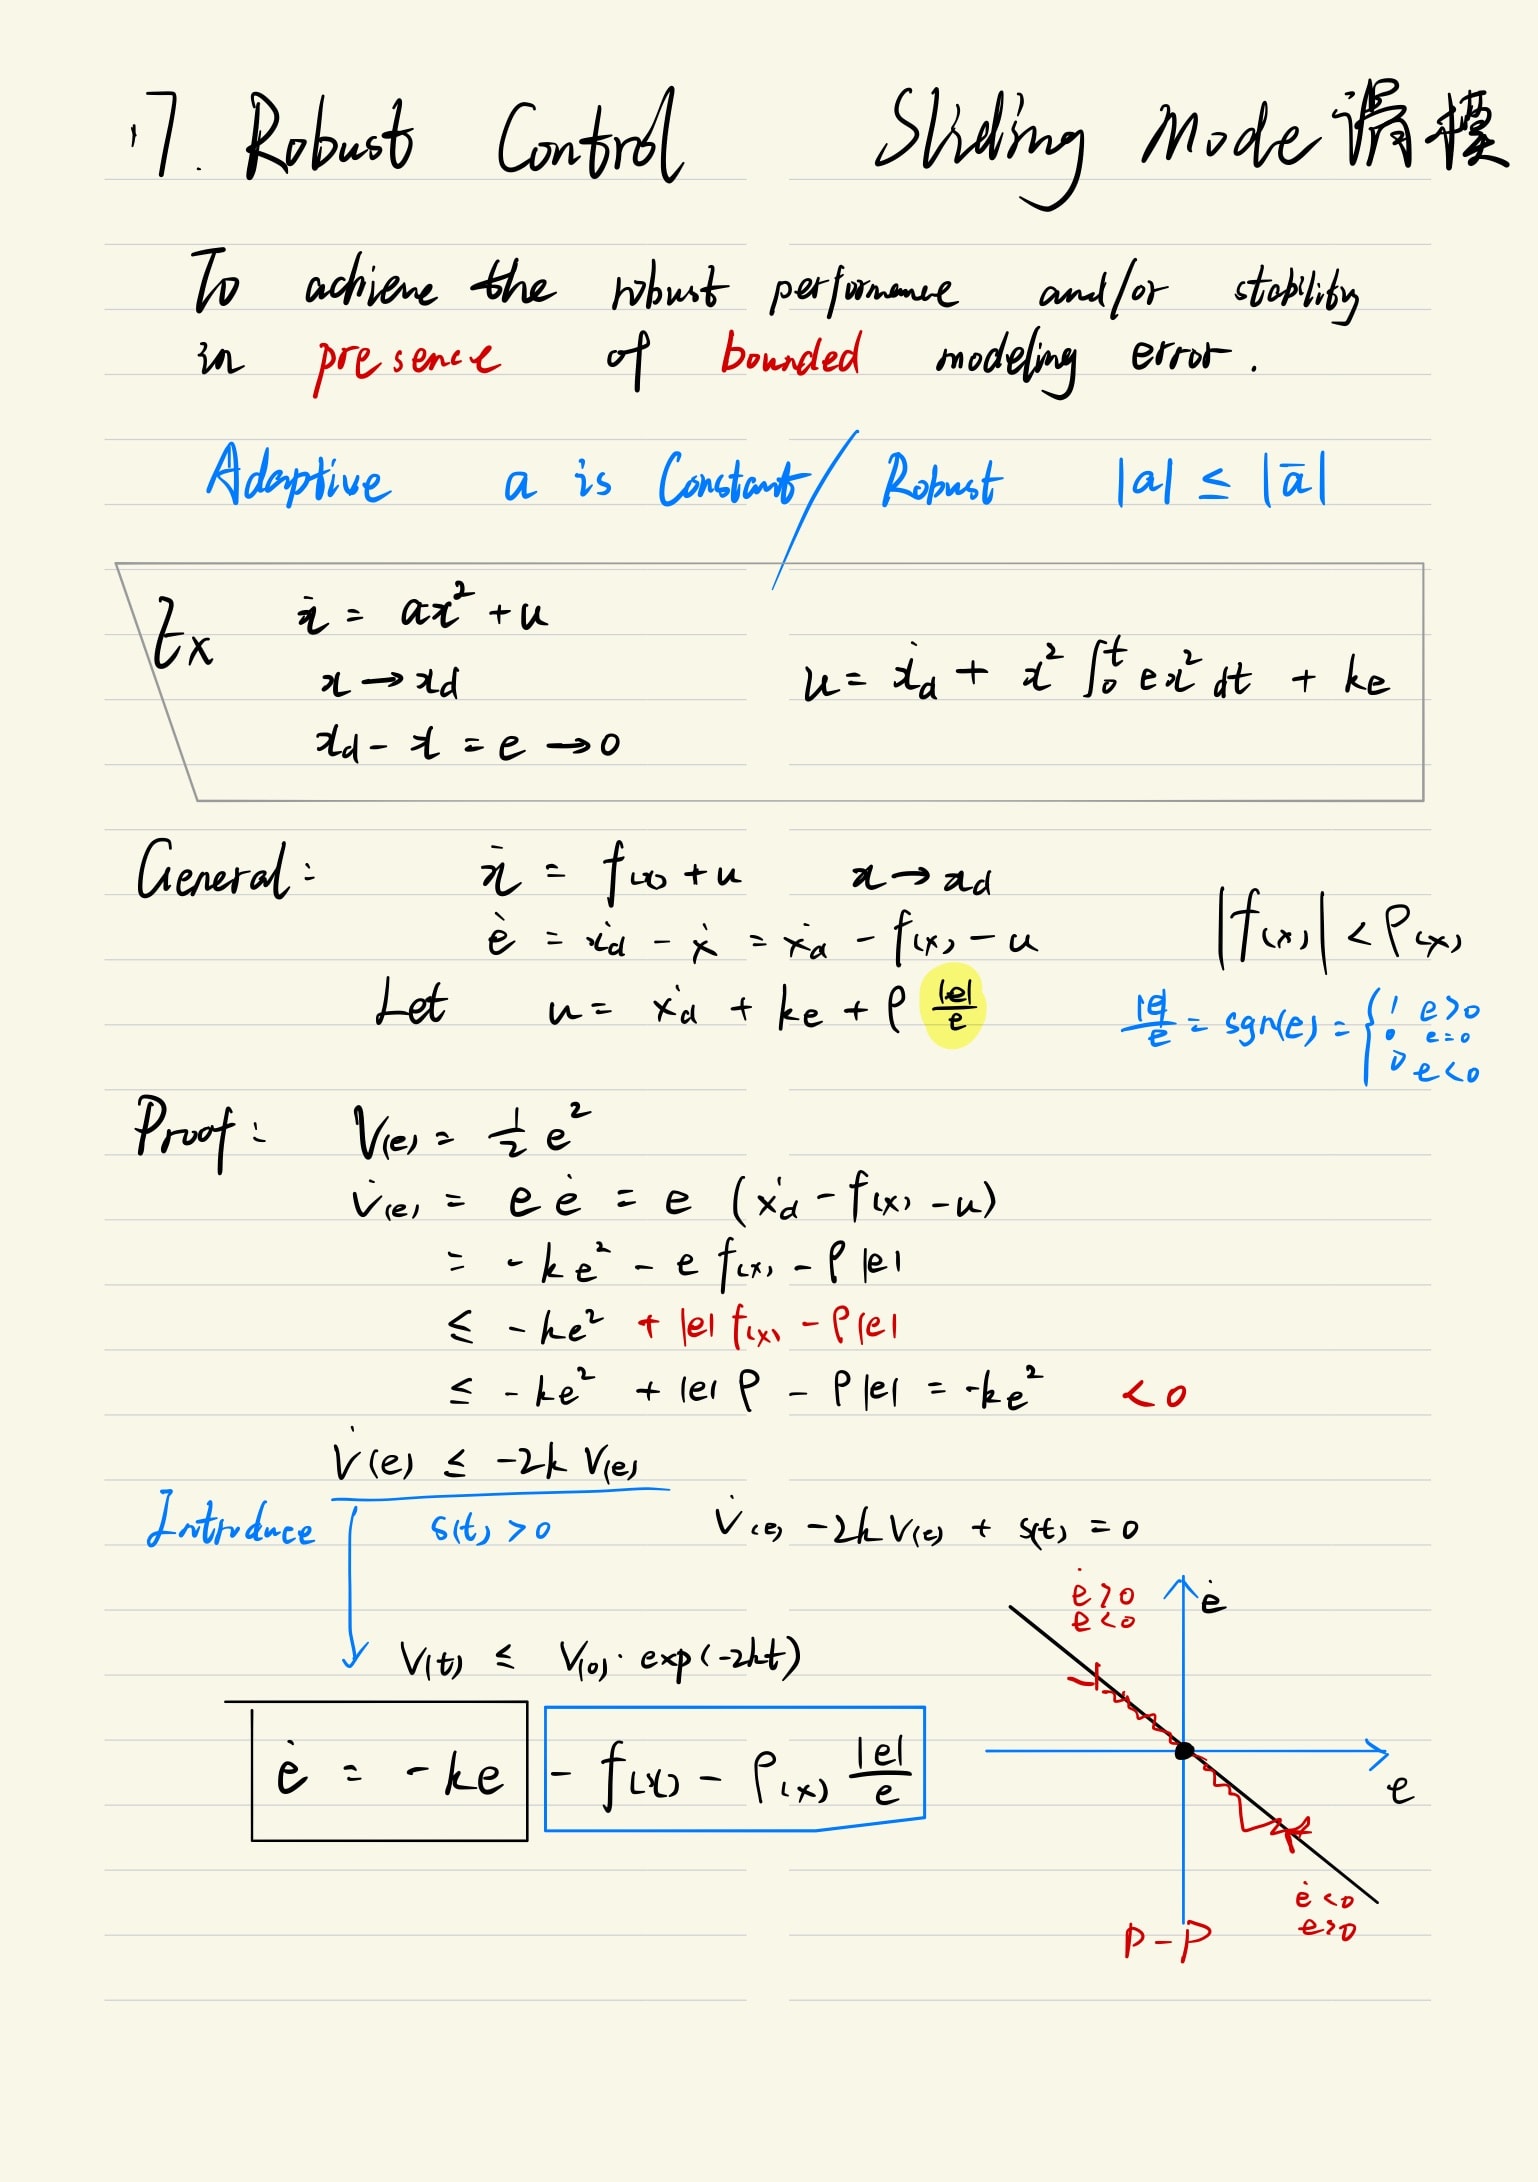 17. Robust Control Sliding Mode 滑模
To achieve the robust performance and/or stability
in presence of bounded modeling error.
Adaptive a is Constant / Robust |a| ≤ |ā|
Ex ẋ = ax² + u
x → xd u = ẋd + x² ∫₀ᵗ ex² dt + ke
xd - x = e → 0
General: ẋ = f(x) + u x → xd
ė = ẋd - ẋ = ẋd - f(x) - u |f(x)| < ρ(x)
Let u = ẋd + ke + ρ |e|/e |e|/e = sgn(e) = { 1 e>0
0 e=0
0 e<0
Proof: V(e) = 1/2 e²
V̇(e) = e ė = e (ẋd - f(x) - u)
= -ke² - e f(x) - ρ|e|
≤ -ke² + |e| f(x) - ρ|e|
≤ -ke² + |e| ρ - ρ|e| = -ke² < 0
V̇(e) ≤ -2k V(e)
Introduce s(t) > 0 V̇(e) - 2k V(e) + s(t) = 0
ė > 0 ė
e < 0
V(t) ≤ V(0) · exp(-2kt)
ė = -ke - f(x) - ρ(x) |e|/e
e
ė < 0
e > 0
P-P